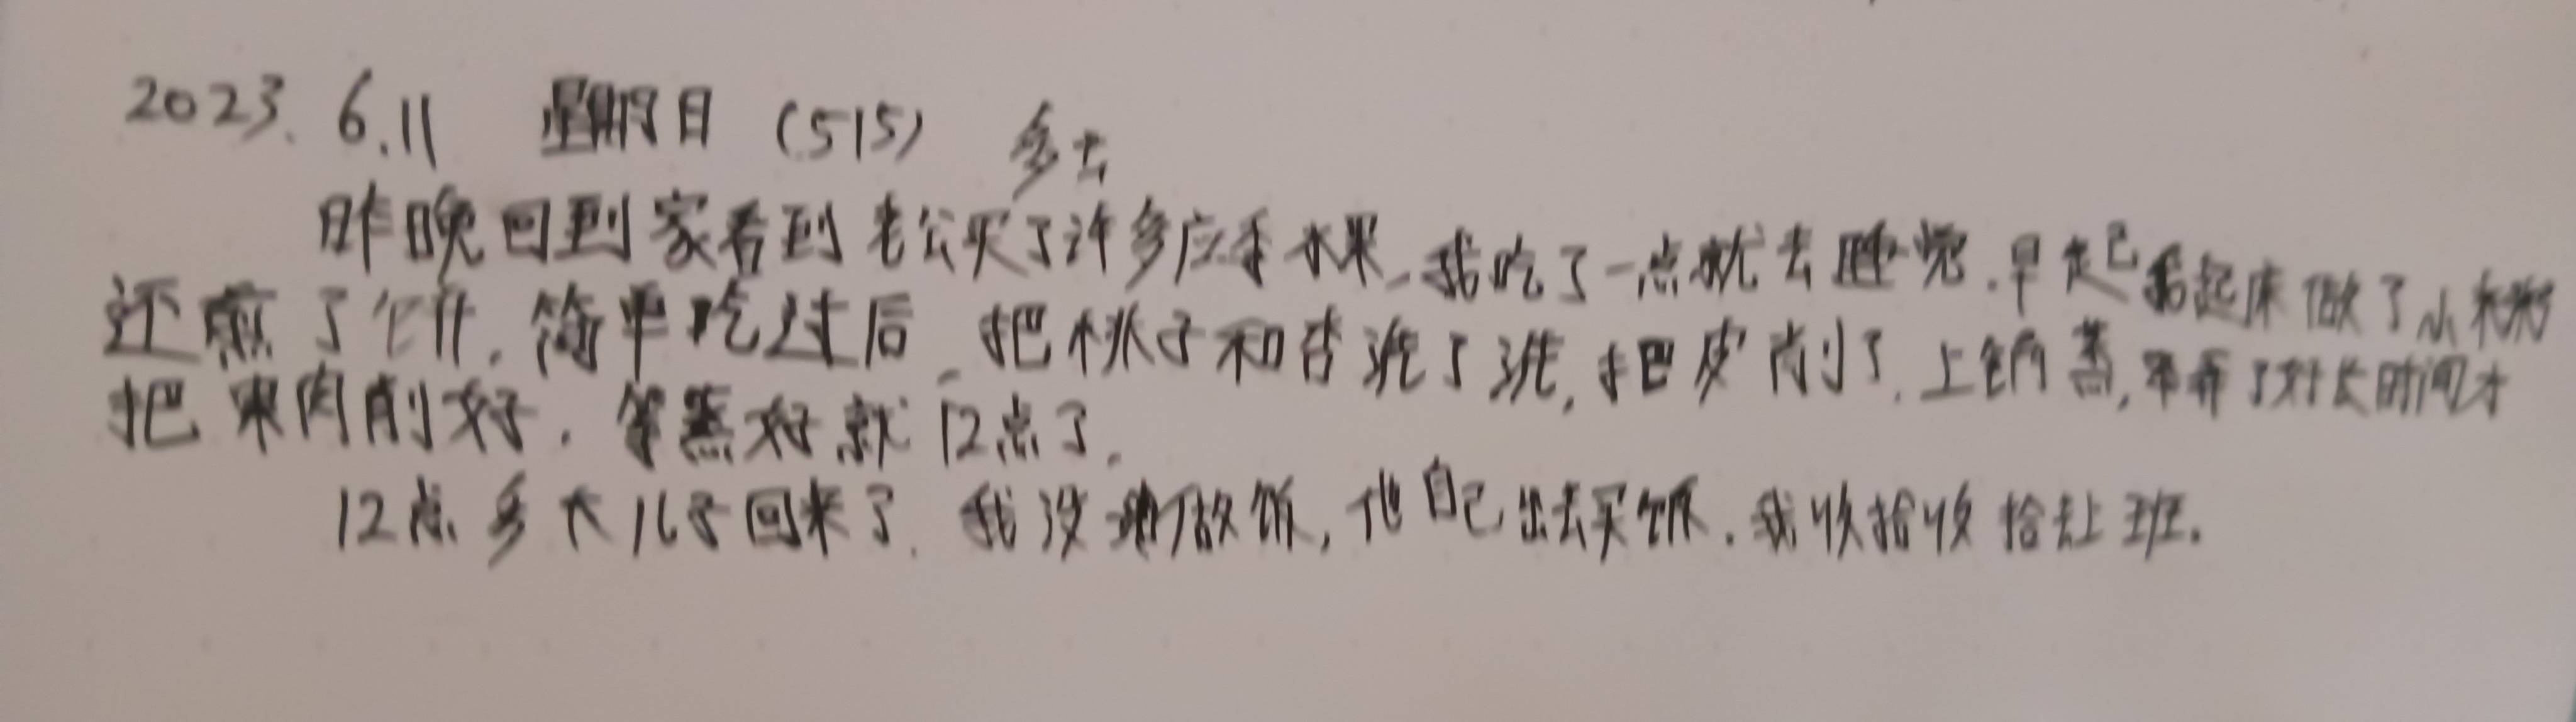 2023. 6.11 星期日 (515) 多云
昨晚回到家看到老公买了许多应季水果,我吃了一点就去睡觉.早起我起床做了小米粥
还煎了饼.简单吃过后,把桃子和杏洗了洗,把皮削了.上锅蒸,弄了好长时间才
把果肉削好.等蒸好就12点了.
12点多大儿子回来了.我没做饭,他自己出去买饭.我收拾收拾去上班.